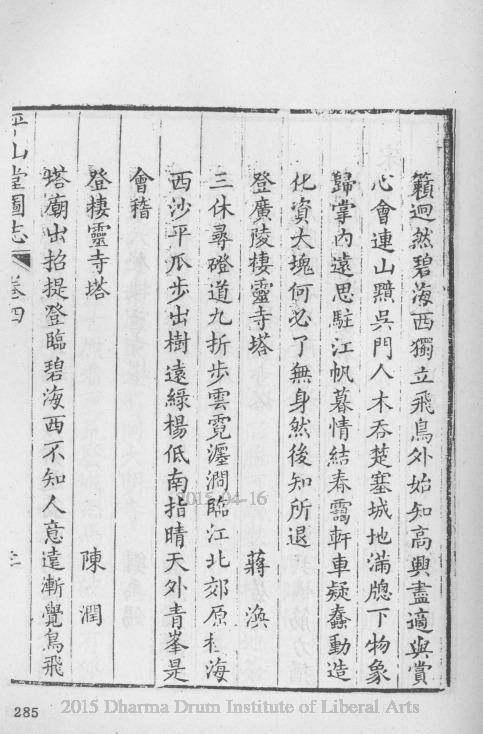 籟迥然碧海西獨立飛鳥外始知高興盡適與賞
心會連山黯吳門人木吞楚塞城地滿牕下物象
歸掌內遠思駐江帆暮情結春靄軒車疑蠢動造
化資大塊何必了無身然後知所退
登廣陵棲靈寺塔 蔣渙
三休尋磴道九折步雲霓瀍澗臨江北郊原極海
西沙平瓜步出樹遠綠楊低南指晴天外青峯是
會稽
登棲靈寺塔 陳潤
塔廟出招提登臨碧海西不知人意遠漸覺鳥飛
平山堂圖志 卷四
285
2015-04-16
2015 Dharma Drum Institute of Liberal Arts